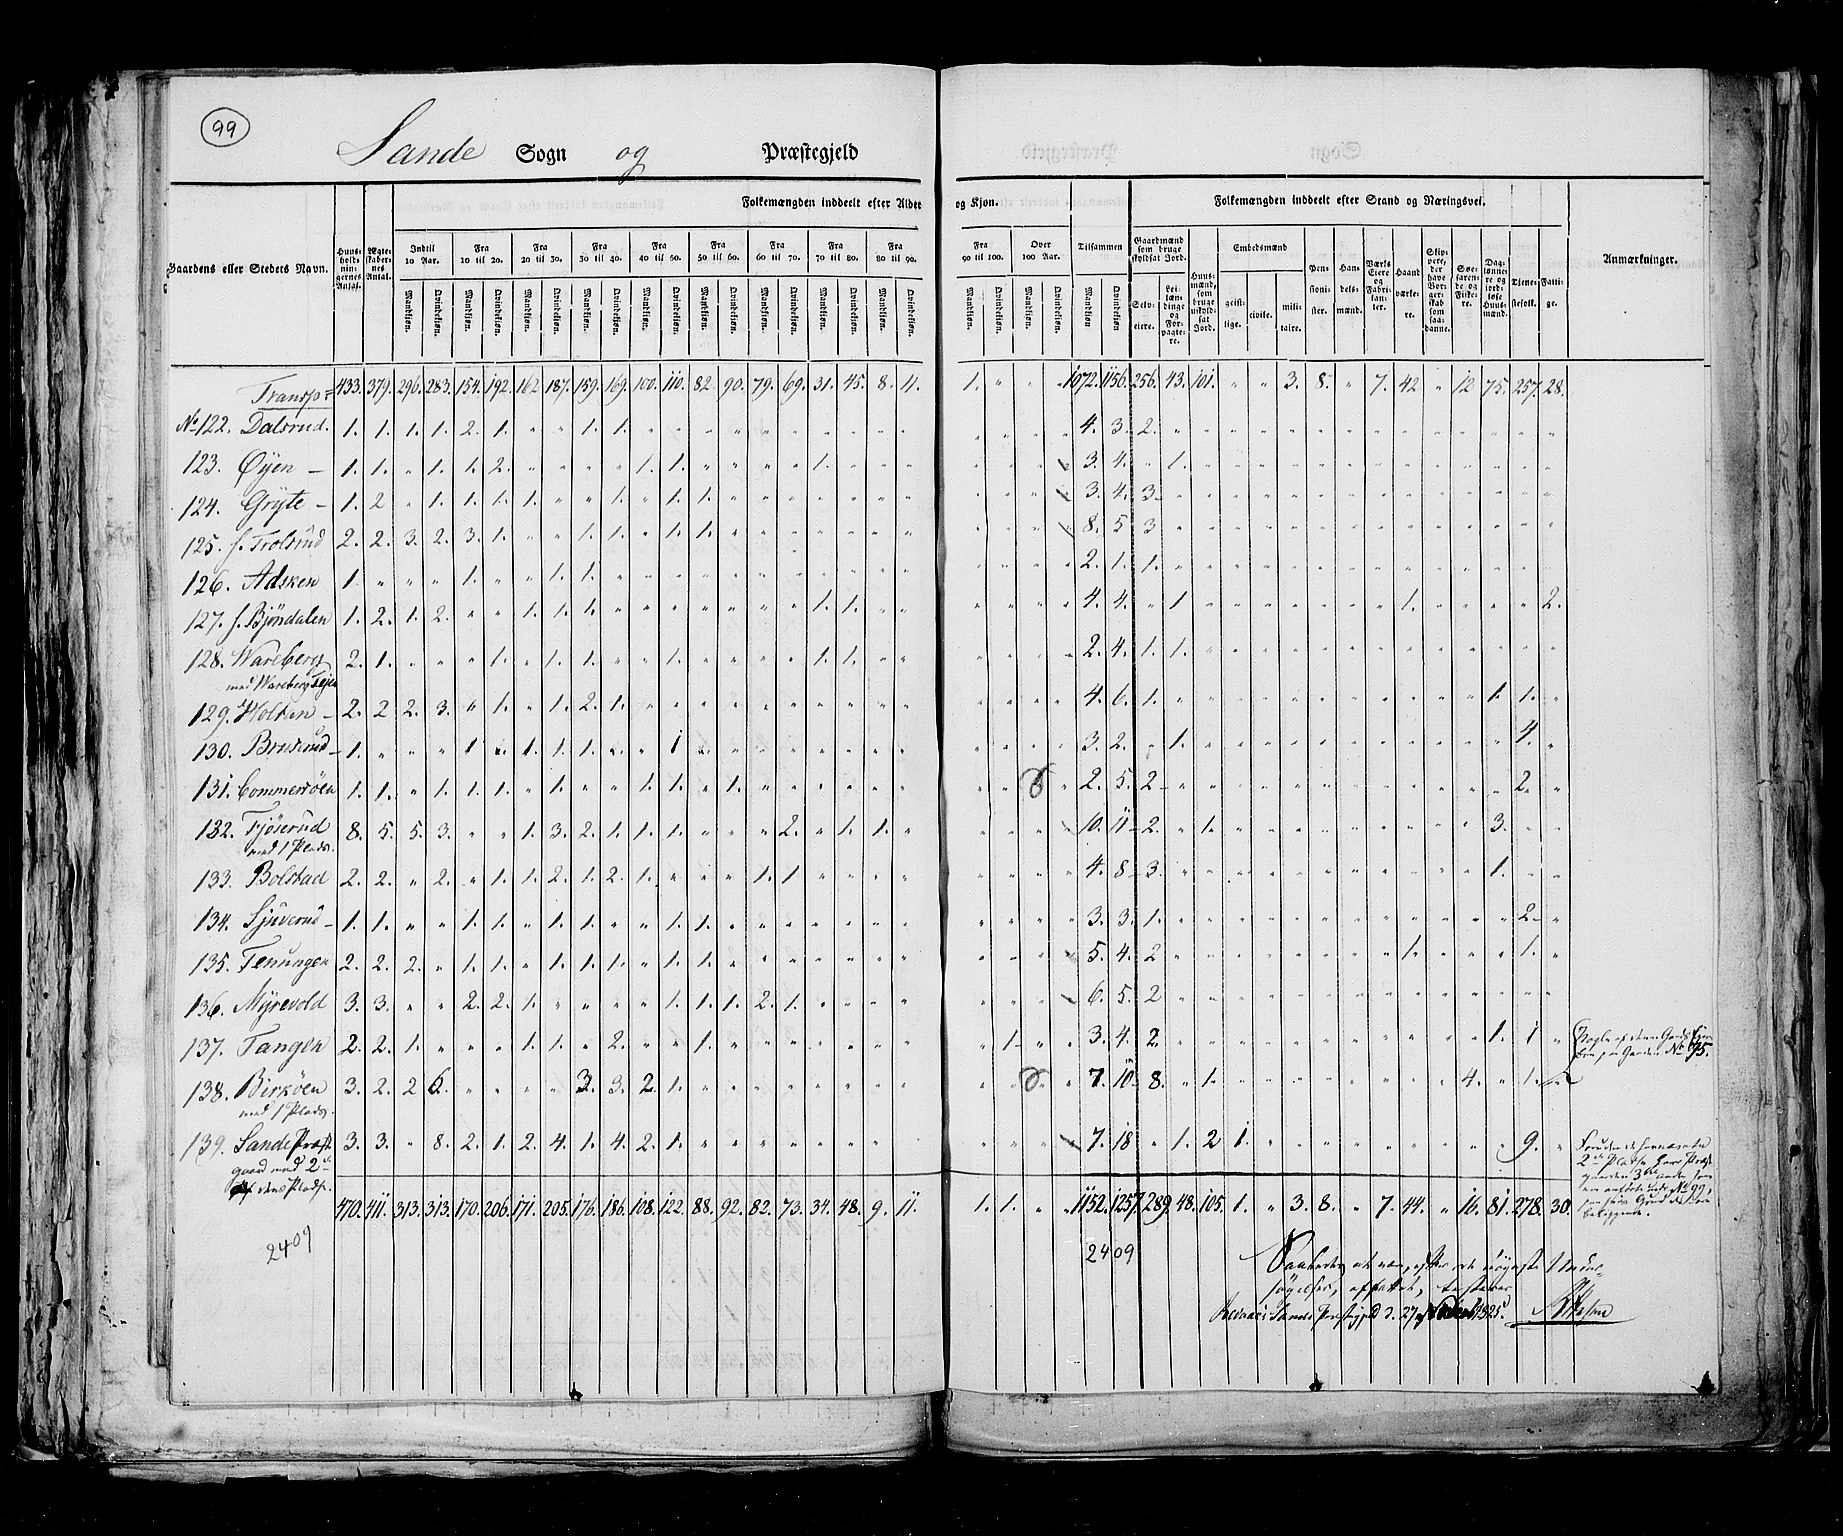 99
Sande Sogn og Præstegjeld
Folkemængden inddeelt efter Alder og Kjøn.
Folkemængden inddeelt efter Stand og Næringsvei.
Gaardens eller Stedets Navn.
Huusholdningernes Antal.
Ægteskabernes Antal.
Indtil 10 Aar.
Fra 10 til 20.
Fra 20 til 30.
Fra 30 til 40.
Fra 40 til 50.
Fra 50 til 60.
Fra 60 til 70.
Fra 70 til 80.
Fra 80 til 90.
Fra 90 til 100.
Over 100 Aar.
Tilsammen
Mandkjøn. Qvindekjøn.
Gaardmænd som bruge skyldsat Jord.
Selveiere.
Leilændinge og Forpagtere.
Huusmænd, som bruge uskyldsat Jord.
Embedsmænd
geistlige.
civile.
militaire.
Pensionister.
Handelsmænd.
Værks Eiere og Fabrikanter.
Haandværkere.
Skippere, der have Borgerskab som saadanne.
Søefarende og Fiskere.
Daglønnere og jordløse Huusmænd.
Tjenestefolk.
Fattige.
Anmærkninger.
Transp= 433. 379. 296. 283. 154. 192. 162. 187. 159. 169. 100. 110. 82. 90. 79. 69. 31. 45. 8. 11. 1. " " " 1072. 1156. 256. 43. 101. " " 3. 8. " 7. 42 " 12 75. 257. 28.
No 122. Dalsrud. 1. 1. 1. 1. 2. 1. " " 1. 1. 4. 3. 2.
123. Øyen – 1. 1. " 1. 1. 2. " " " " 1. 1. " " " " 1. 3. 4. " 1.
124. Gryte – 1. 2 " 1. 1. 1. 1. " " 1. " 1. 1. 3. 4. 3
125. f. Trolsrud 2. 2. 3. 2. 3. 1. " " 1. 1. " 1. 1. 8. 5 3
126. Adsken 1. " " " 1. " " 1. 1. 2. 1. 1.
127. f. Bjöndalen 1. 2. 1. 2. " " 1. 1. 1. " " " " " " " 1. 1. 4. 4. " 1 1. 2.
128. Wareberg 2. 1. " " " 1. " 1. 1. " " 1. " " " " 1. 1. 2. 4. 1. 1.
med Wareberg
129. Holten – 2. 2 2. 3. " 1. " 1. 2. 1. 4. 6. 1. 1. 1.
130. Bruserud – 1. " " " 1 " 1. 1. 1. " " 1 3. 2. " 1. 4.
131. Commersöen 1. 1. " 1. 1. 1. " 1. " " 1. 1. " 1. 2. 5. 2 2.
132. Tjöserud 8. 5. 5. 3. " " 1. 3. 2. 1. 1. 1. " " " 2. " 1. 1. 10. 11 2. " 1. 3.
med 1 Plads.
133. Bolstad 2. 2. " 2. " 1. 1. 2. 1. 2. 1. " " " 1. 1 4. 8 3. 1.
134. Sjuverud – 1. 1. " " 1. 1. " 1. 1. " " 1. 1. 3. 3. 1. 2
135. Tenungen 2. 2. 2. " 1. 1. " 1. 1. 1. " 1. 1. 5. 4. 2 1. 1.
136. Myrevold 3. 3. " " 2. 2. 1. " " " " 1. 1. 1. 2. 1. 6. 5. 2
137. Tangen 2. 2. 1. " " " 1. 1. " 2. " " 1. 1 3. 4. 2. 1. 1
138. Birköen 3. 2. 2 6. " " " " 3. 3. 2. 1. 7. 10. 8. " 1. 4. " 1.
med 1 Plads.
139. Sande Præste 3. 3. " 8. 2. 1. 2. 4. 1. 4. 2. 1. 7. 18 " 1. 2 1. 9.
gaard med 2de
dens Pladse.
470. 411. 313. 313. 170. 206. 171. 205. 176. 186. 108. 122. 88. 92. 82. 73. 34. 48. 9. 11. 1. 1. " " 1152. 1257. 289. 48. 105. 1. " 3. 8. " 7. 44. " 16. 81. 278. 30.
2409
2409